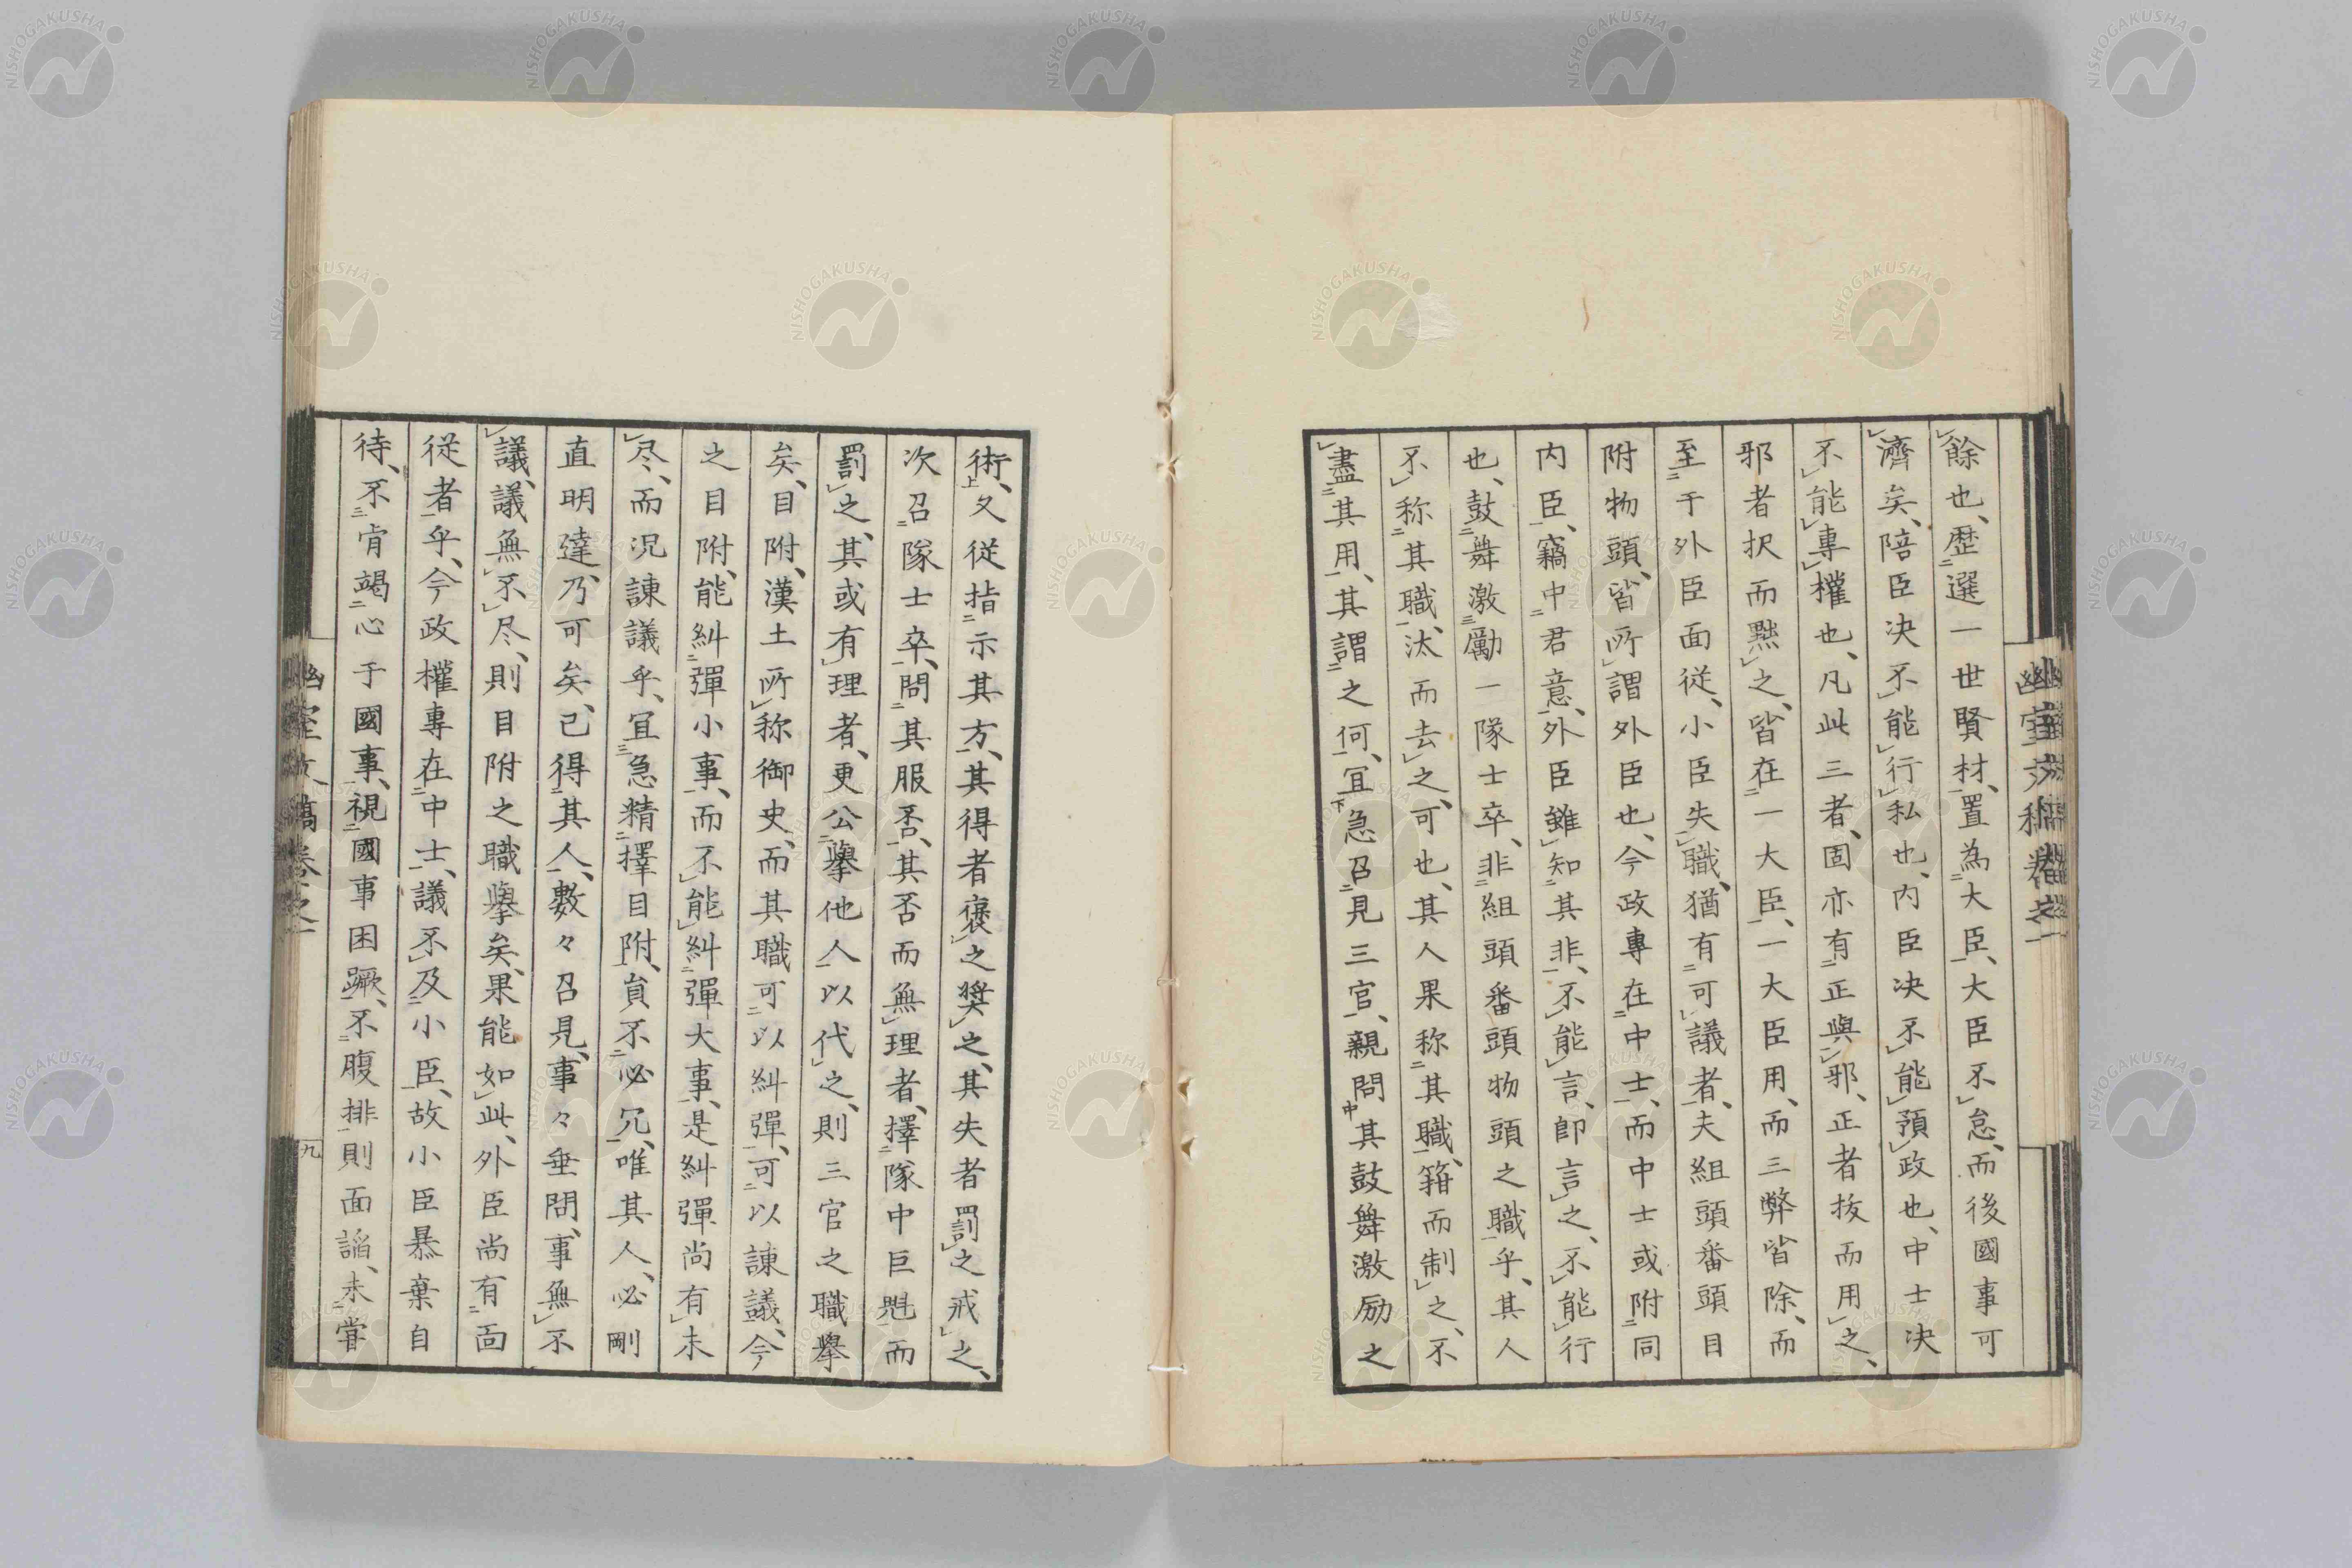 餘也、歴選一世賢材、置為大臣、大臣不怠、而後國事可
濟矣、陪臣决不能行私也、内臣决不能預政也、中士决
不能專權也、凡此三者、固亦有正與邪、正者抜而用之、
邪者択而黙之、皆在一大臣、一大臣用、而三弊皆除、而
至于外臣面従、小臣失職、猶有可議者、夫組頭番頭目
附物頭、皆所謂外臣也、今政專在中士、而中士或附同
内臣、竊中君意、外臣雖知其非、不能言、卽言之、不能行
也、鼓舞激勵一隊士卒、非組頭番頭物頭之職乎、其人
不称其職、汰而去之、可也、其人果称其職、籍而制之、不
盡其用、其謂之何、冝急召見三官、親問其鼓舞激励之
術、又從指示其方、其得者褒之奬之、其失者罰之戒之、
次召隊士卒、問其服否、其否而無理者、擇隊中巨魁而
罰之、其或有理者、更公擧他人以代之、則三官之職擧
矣、目附、漢土所称御史、而其職可以糾彈、可以諌議、今
之目附、能糾彈小事、而不能糾彈大事、是糾彈尚有未
尽、而况諌議乎、冝急精擇目附、貟不必冗、唯其人、必剛
直明達、乃可矣、已得其人、數々召見、事々垂問、事無不
議、議無不尽、則目附之職擧矣、果能如此、外臣尚有面
従者乎、今政權專在中士、議不及小臣、故小臣暴棄自
待、不肯竭心于國事、視國事困蹶、不腹排則面謟、未甞
幽室文稿卷之一
九
NISHOGAKUSHA